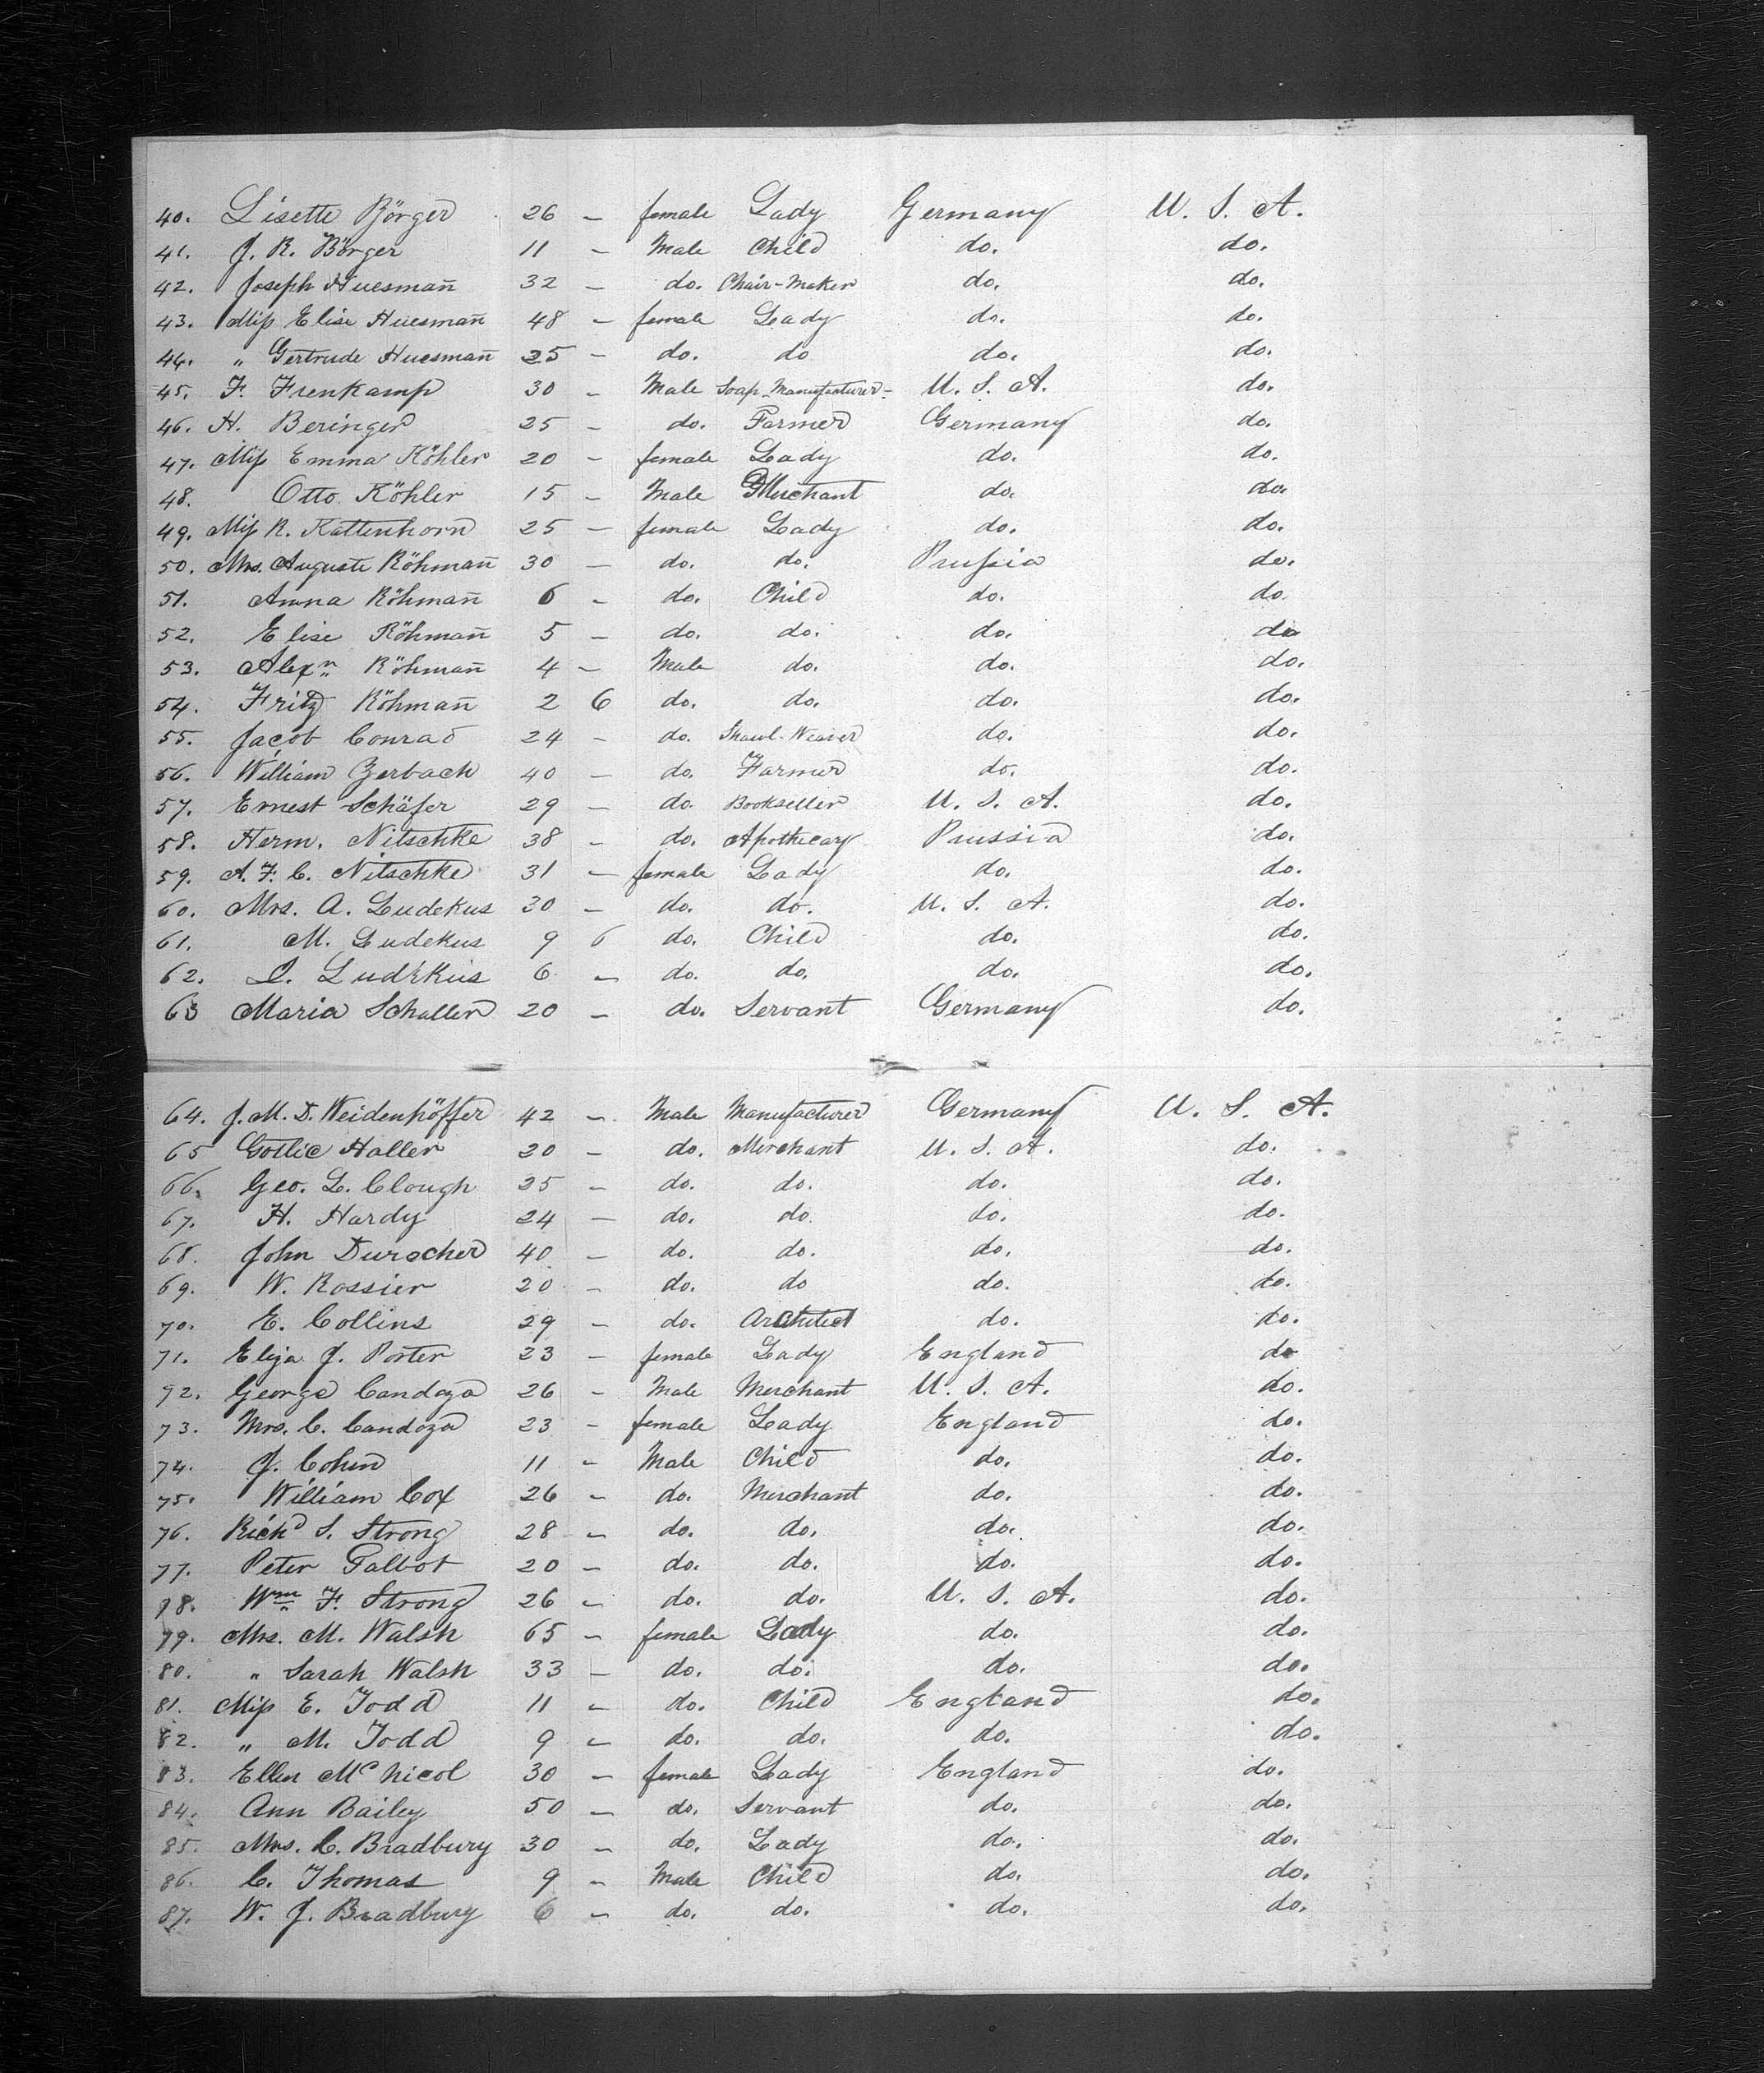 40. Lisette Börger 26 – female Lady Germany U. S. A.
41. J. R. Börger 11 – Male Child do. do.
42. Joseph Huesman̄ 32 – do. Chair-Maker do. do.
43. Miss Elise Huesman̄ 48 – female Lady do. do.
44. " Gertrude Huesman̄ 25 – do. do do. do.
45. F. Frenkamp 30 – Male Soap-Manufacturer- U. S. A. do.
46. H. Beringer 25 – do. Farmer Germany do.
47. Miss Emma Köhler 20 – female Lady do. do.
48. Otto Köhler 15 – Male Merchant do. do.
49. Miss R. Kattenhorn 25 – female Lady do. do.
50. Mrs. Auguste Röhman̄ 30 – do. do. Prussia do.
51. Anna Röhman̄ 6 – do. Child do. do.
52. Elise Röhman̄ 5 – do. do. do. do
53. Alexr. Röhman̄ 4 – Male do. do. do.
54. Fritz Röhman̄ 2 6 do. do. do. do.
55. Jacob Conrad 24 – do. Shawl-Weaver do. do.
56. William Zerbach 40 – do. Farmer do. do.
57. Ernest Schäfer 29 – do. Bookseller U. S. A. do.
58. Herm. Nitschke 38 – do. Apothecary Prussia do.
59. A. F. C. Nitschke 31 – female Lady do. do.
60. Mrs. A. Ludekus 30 – do. do. U. S. A. do.
61. M. Ludekus 9 6 do. Child do. do.
62. D. Ludekus 6 – do. do. do. do.
63 Maria Schaller 20 – do. Servant Germany do.
64. J. M. D. Weidenhöffer 42 – Male Manufacturer Germany U. S. A.
65 Gotlie Haller 20 – do. Merchant U. S. A. do.
66. Geo. L. Clough 35 – do. do. do. do.
67. H. Hardy 24 – do. do. do. do.
68. John Durocher 40 – do. do. do. do.
69. W. Rossier 20 – do. do do. do.
70. E. Collins 29 – do. Architect do. do.
71. Eliza J. Porter 23 – female Lady England do
72. George Candoza 26 – Male Merchant U. S. A. do.
73. Mrs. C. Candoza 23 – female Lady England do.
74. J. Cohen 11 – Male Child do. do.
75. William Cox 26 – do. Merchant do. do.
76. Richd S. Strong 28 – do. do. do. do.
77. Peter Talbot 20 – do. do. do. do.
78. Wm F. Strong 26 – do. do. U. S. A. do.
79. Mrs. M. Walsh 65 – female Lady do. do.
80. " Sarah Walsh 33 – do. do. do. do.
81. Miss E. Todd 11 – do. Child England do.
82. " M. Todd 9 – do. do. do. do.
83. Ellen McNicol 30 – female Lady England do.
84. Ann Bailey 50 – do. Servant do. do.
85. Mrs. C. Bradbury 30 – do. Lady do. do.
86. C. Thomas 9 – Male Child do. do.
87. W. J. Bradbury 6 – do. do. do. do.